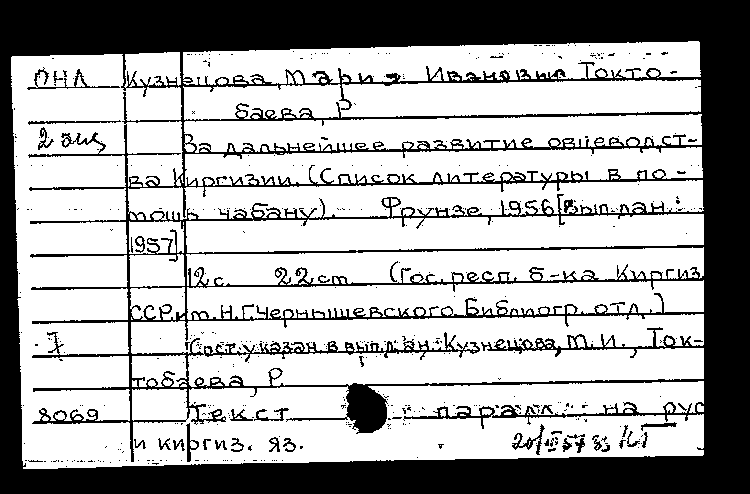 ОНЛ Кузнецова, Мария Ивановна Токто-
баева, Р
2 экз За дальнейшее развитие овцеводст-
ва Киргизии. (Список литературы в по-
мощь чабану). Фрунзе, 1956[вып.дан.:
1957].
12с. 22см (Гос. респ. б-ка Киргиз
ССР им. Н.Г.Чернышевского. Библиогр. отд.)
7 Сост. указан. в вып.дан.: Кузнецова, М.И., Ток-
тобаева, Р.
8069 Текст паралл.: на рус
и киргиз. яз.